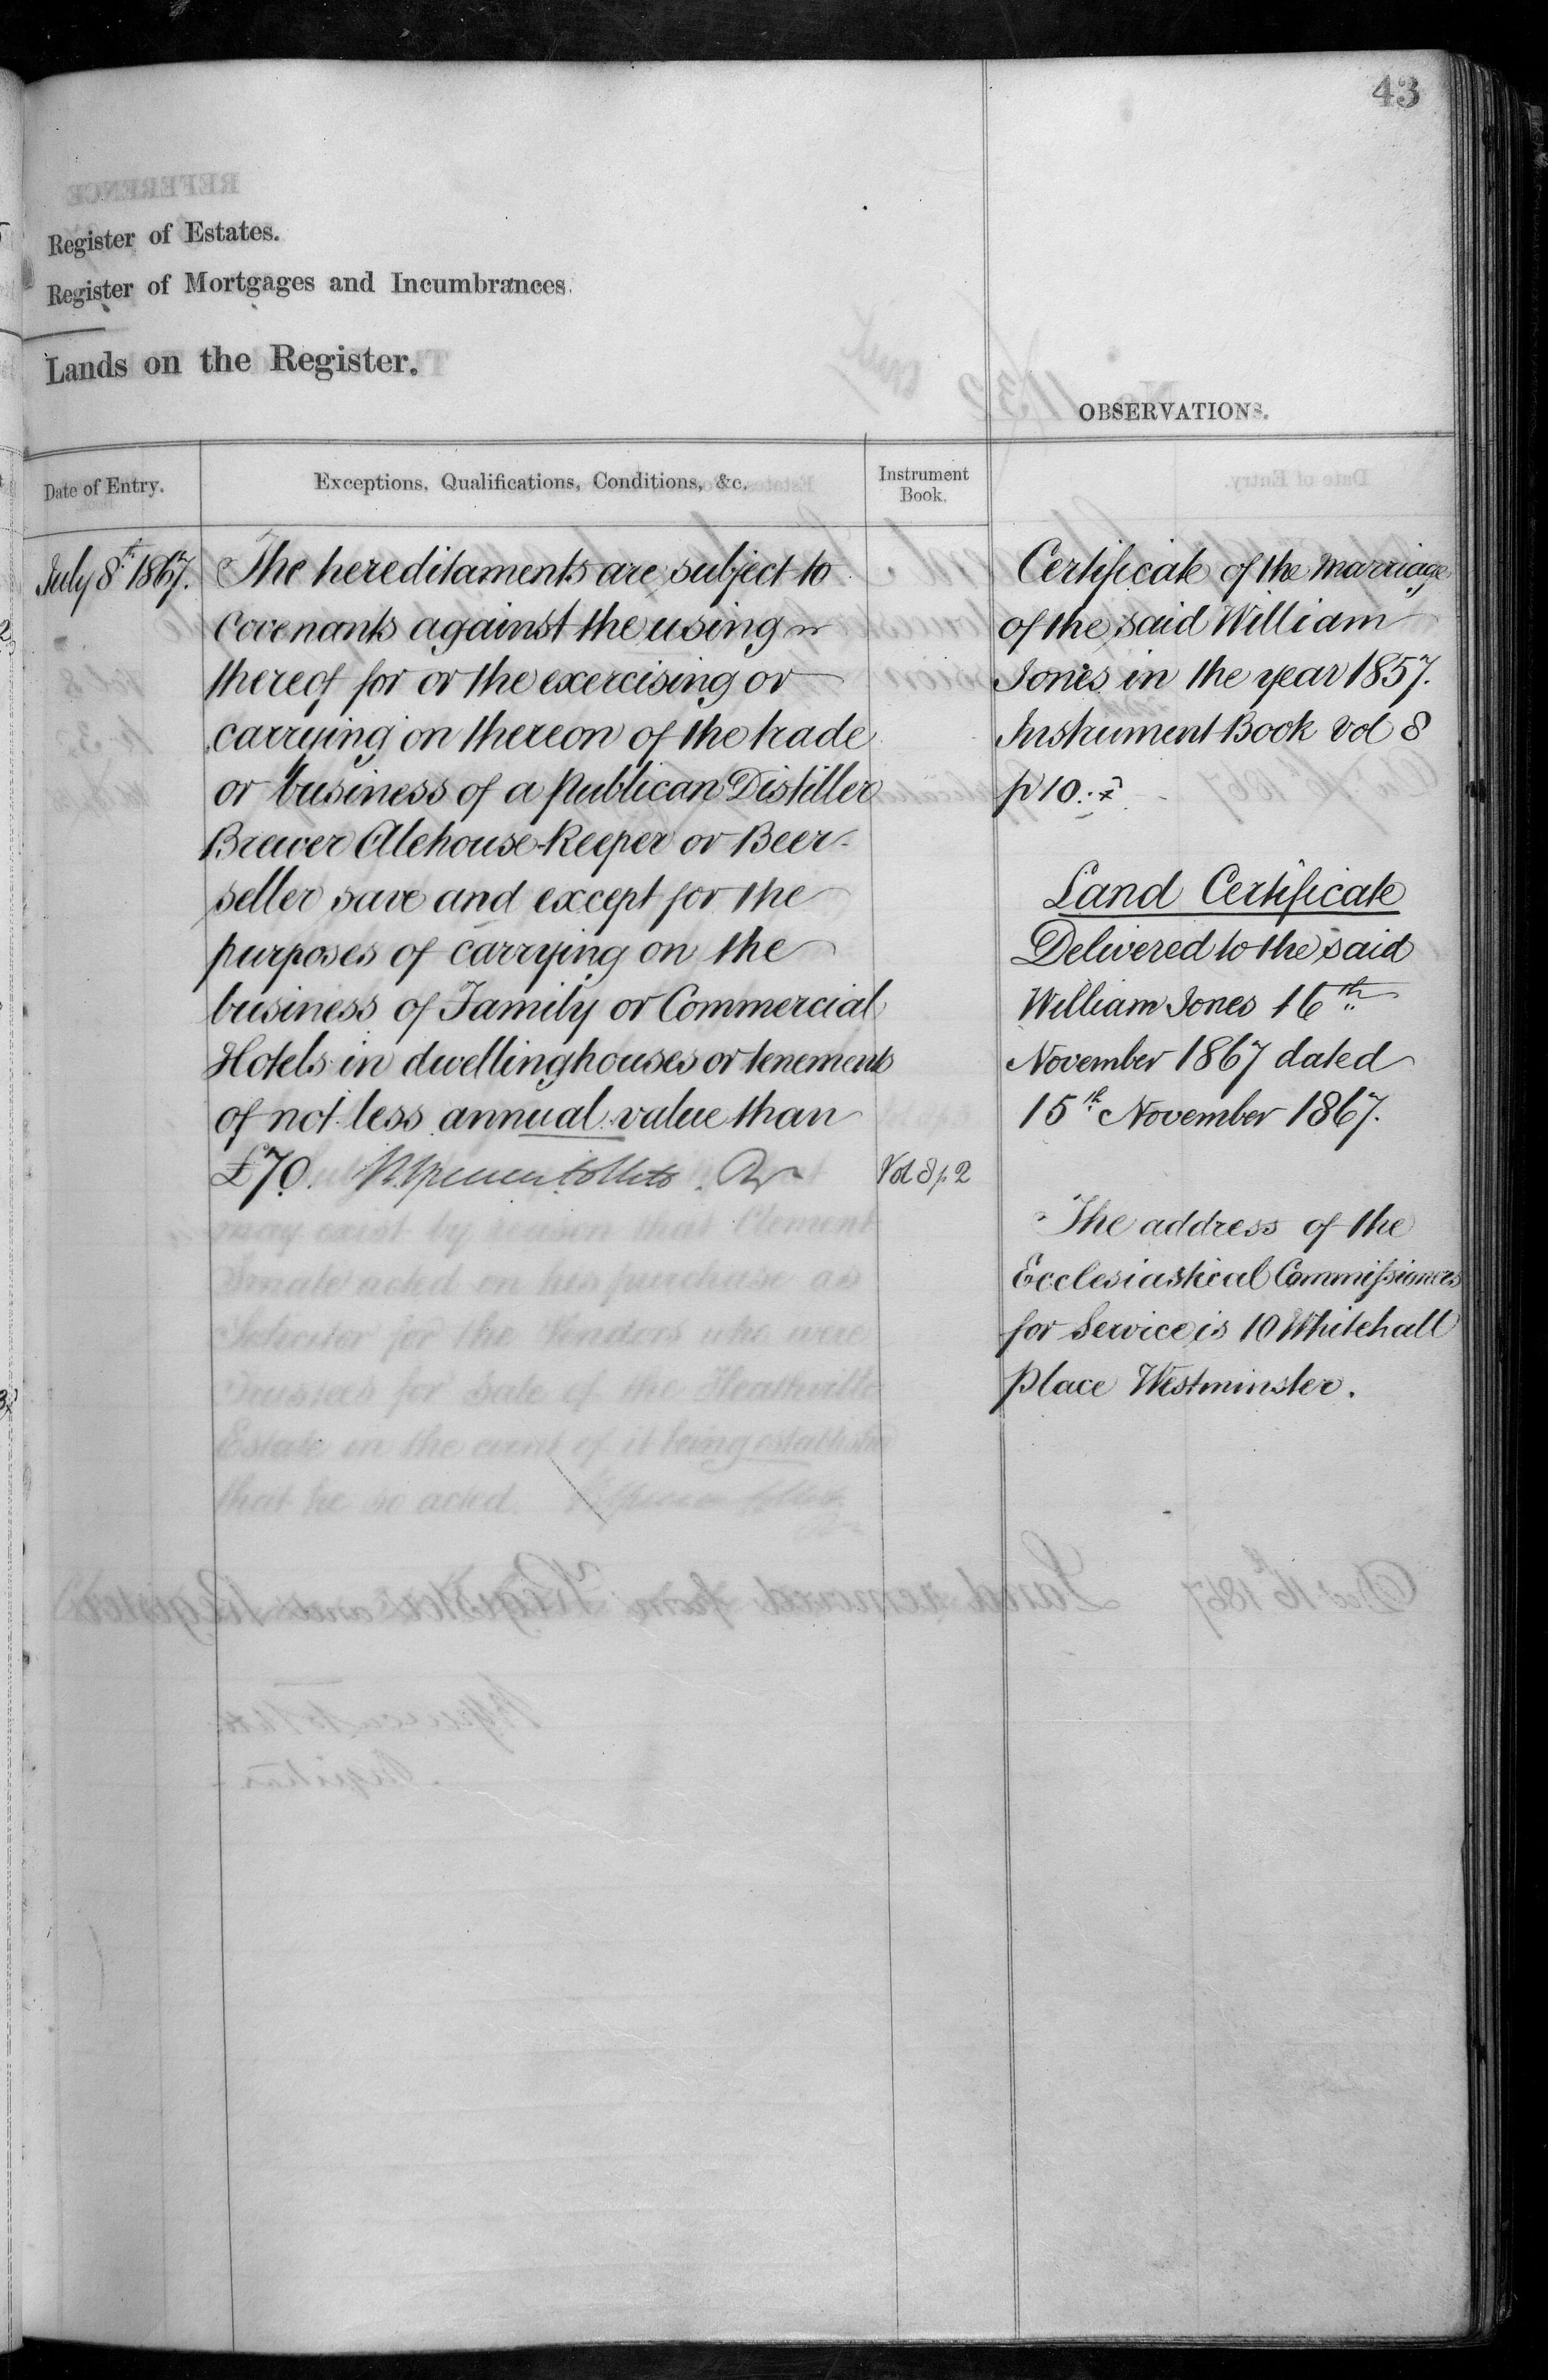 43
Register of Estates.
Register of Mortgages and Incumbrances.
Lands on the Register.
OBSERVATIONS.
Date of Entry.
Exceptions, Qualifications, Conditions, &c.
Instrument
Book.
July 8th 1867.
The hereditaments are subject to
covenants against the using
thereof for or the exercising or
carrying on thereon of the trade
or business of a publican Distiller
Brewer Alehouse-keeper or Beer-
seller save and except for the
purposes of carrying on the
business of Family or Commercial
Hotels in dwellinghouses or tenements
of not less annual value than
£70.
Vol 8 p. 2
may exist by reason that Clement
acted on his purchase as
Solicitor for the Vendors who were
Trustees for Sale of the Heathville
Estate in the event of it being established
that he so acted.
Certificate of the marriage
of the said William
Jones in the year 1857.
Instrument Book Vol 8
p 10.
Land Certificate
Delivered to the said
William Jones 16th
November 1867 dated
15th November 1867.
The address of the
Ecclesiastical Commissioners
for Service is 10 Whitehall
Place Westminster.